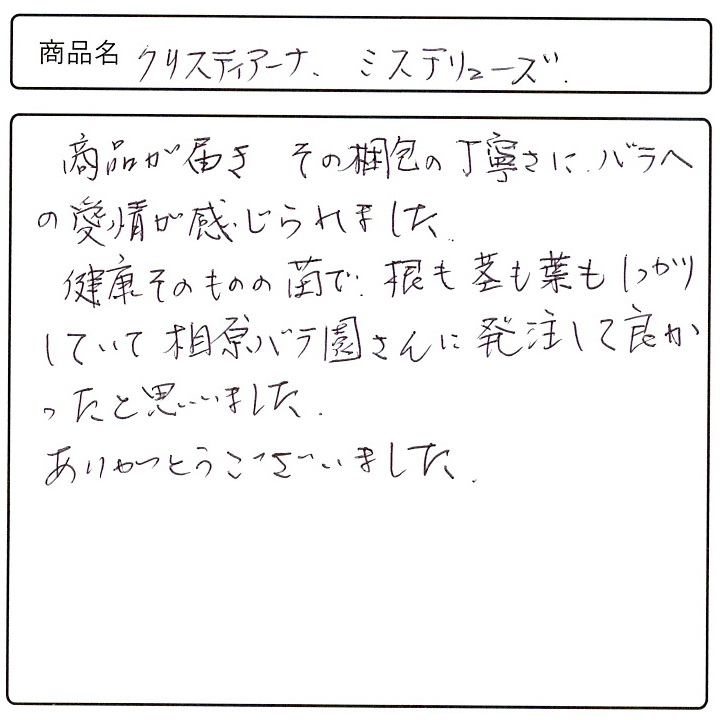 商品名 クリスティアーナ、ミステリューズ.
商品が届き その梱包の丁寧さに、バラへ
の愛情が感じられました.
健康そのものの苗で、根も茎も葉もしっかり
していて相原バラ園さんに発注して良か
ったと思いました.
ありがとうございました.